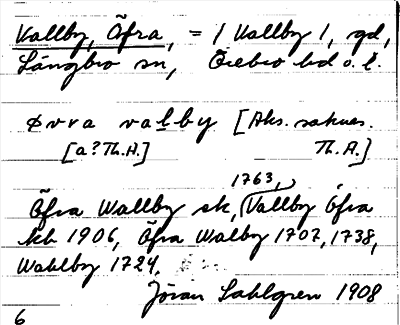 Vallby, Öfra, = 1 Vallby 1, gd,
Långbro sn, Örebro hd o. l.
øvra valby [Aks. saknas.
[a? Th.A.] Th. A.]
1763,
Öfra Wallby sk, Vallby Öfra
kb 1906, Öfra Walby 1707, 1738,
Wahlby 1724.
Jöran Sahlgren 1908
6